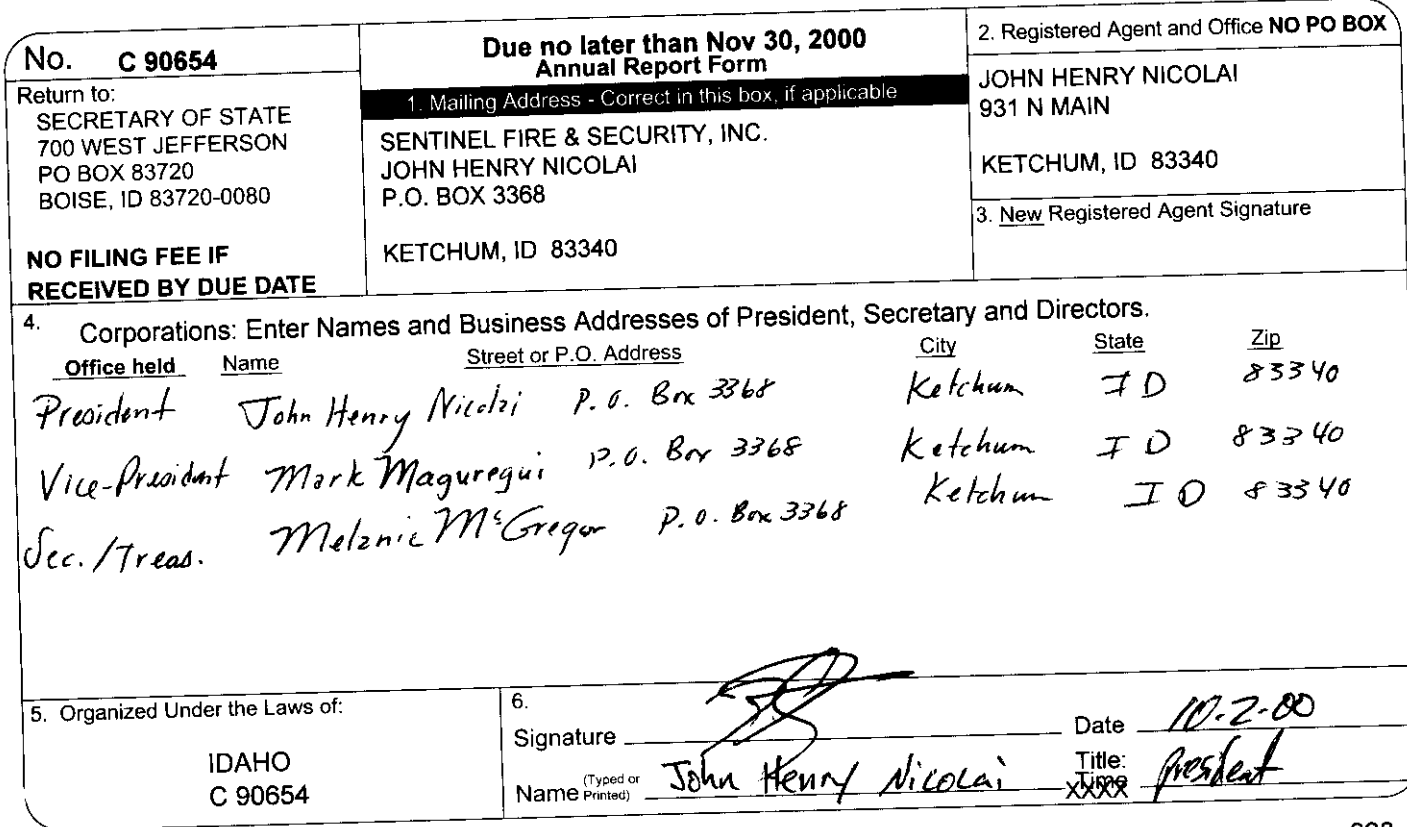 No. C 90654
Return to:
SECRETARY OF STATE
700 WEST JEFFERSON
PO BOX 83720
BOISE, ID 83720-0080
NO FILING FEE IF
RECEIVED BY DUE DATE
Due no later than Nov 30, 2000
Annual Report Form
1. Mailing Address - Correct in this box, if applicable
SENTINEL FIRE & SECURITY, INC.
JOHN HENRY NICOLAI
P.O. BOX 3368
KETCHUM, ID 83340
2. Registered Agent and Office NO PO BOX
JOHN HENRY NICOLAI
931 N MAIN
KETCHUM, ID 83340
3. New Registered Agent Signature
4. Corporations: Enter Names and Business Addresses of President, Secretary and Directors.
Office held Name Street or P.O. Address City State Zip
President John Henry Nicolai P.O. Box 3368 Ketchum ID 83340
Vice-President Mark Maguregui P.O. Box 3368 Ketchum ID 83340
Sec./Treas. Melanie McGregor P.O. Box 3368 Ketchum ID 83340
5. Organized Under the Laws of:
IDAHO
C 90654
6.
Signature Date 10-2-00
Name (Typed or Printed) John Henry Nicolai Title: President